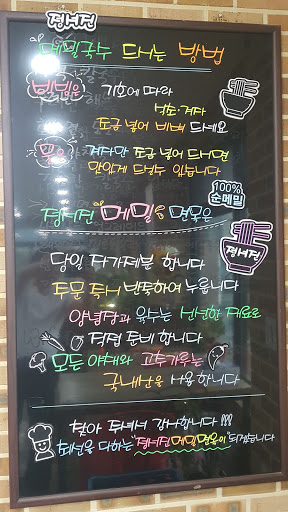 메밀국수 드시는 방법
비빔은 기호에 따라
식초·겨자
조금 넣어 비벼 드세요
물은 겨자만 조금 넣어 드시면
맛있게 드실수 있습니다
100%
순메밀
메밀 명옥은
당일 자가제분 합니다
주문 즉시 반죽하여 누릅니다
양념장과 육수는 신선한 재료로
직접 준비 합니다
모든 야채와 고추가루는
국내산을 사용 합니다
찾아 주셔서 감사합니다 !!!
최선을 다하는 메밀명옥이 되겠습니다